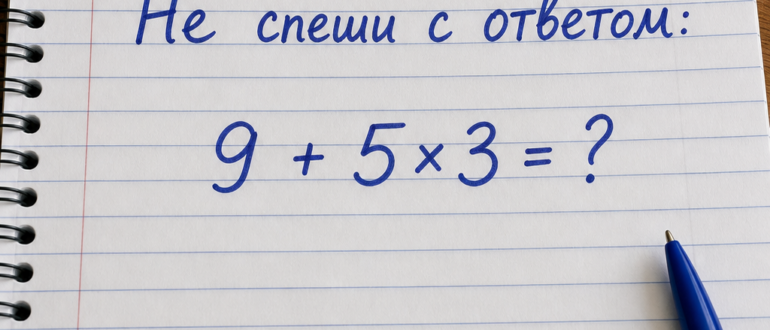 Не спеши с ответом:
9 + 5 × 3 = ?